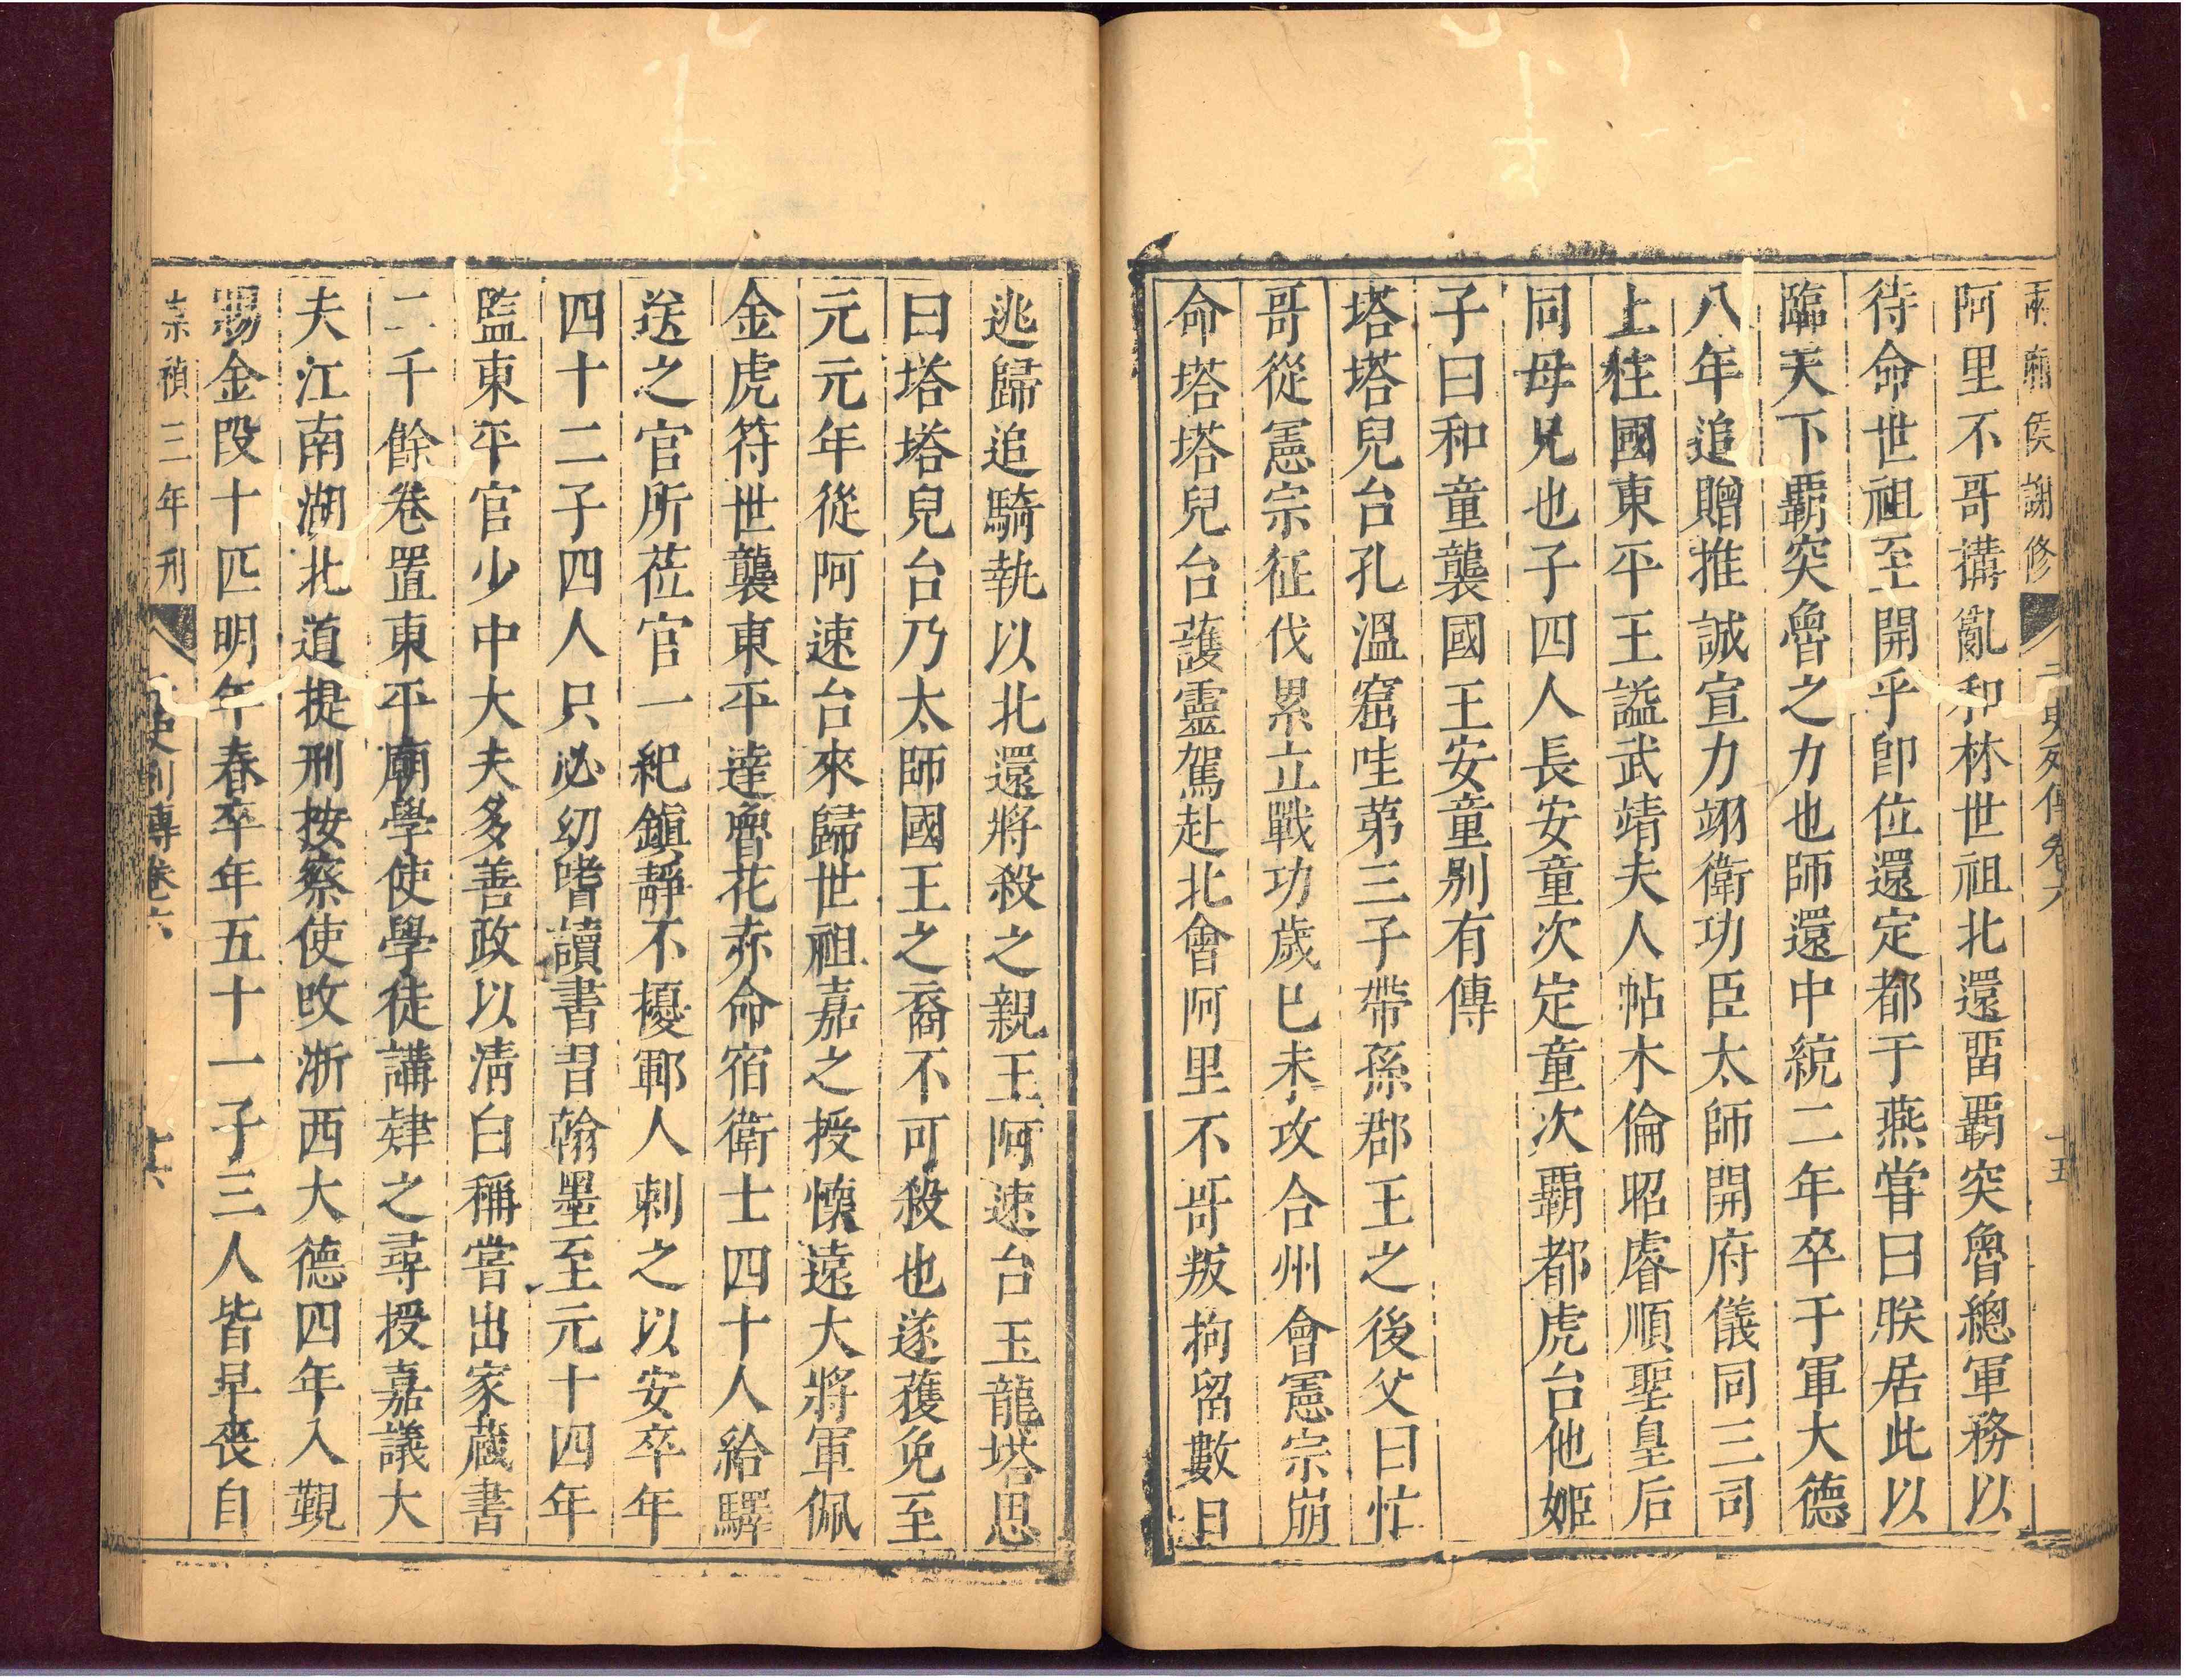 侯謝修 元史列傳卷六 十五
阿里不哥搆亂和林世祖北還畱霸突魯總軍務以
待命世祖至開平卽位還定都于燕嘗曰朕居此以
臨天下霸突魯之力也師還中統二年卒于軍大德
八年追贈推誠宣力翊衛功臣太師開府儀同三司
上柱國東平王謚武靖夫人帖木倫昭睿順聖皇后
同母兄也子四人長安童次定童次霸都虎台他姬
子曰和童襲國王安童別有傳
塔塔兒台孔溫窟哇第三子帶孫郡王之後父曰忙
哥從憲宗征伐累立戰功歲已未攻合州會憲宗崩
命塔塔兒台護靈駕赴北會阿里不哥叛拘留數日
逃歸追騎執以北還將殺之親王阿速台玉龍塔思
曰塔塔兒台乃太師國王之裔不可殺也遂蒦免至
元元年從阿速台來歸世祖嘉之授懷遠大將軍佩
金虎符世襲東平達魯花赤命宿衛士四十人給驛
送之官所莅官一紀鎮靜不擾鄆人刺之以安卒年
四十二子四人只必幼嗜讀書習翰墨至元十四年
監東平官少中大夫多善政以淸白稱嘗出家藏書
二千餘卷置東平廟學使學徒講肄之尋授嘉議大
夫江南湖北道提刑按察使改浙西大德四年入覲
賜金段十匹明年春卒年五十一子三人皆早喪自
崇禎三年刊 元史列傳卷六 十六